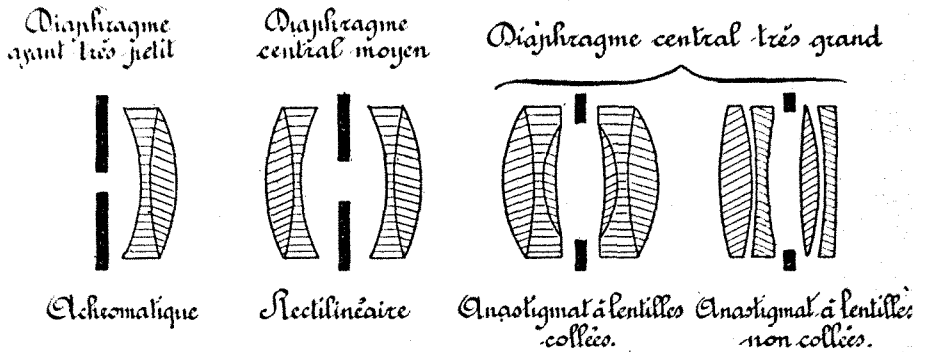 Diaphragme
avant très petit
Diaphragme
central moyen
Diaphragme central très grand
Achromatique
Rectilinéaire
Anastigmat à lentilles
collées.
Anastigmat à lentilles
non collées.